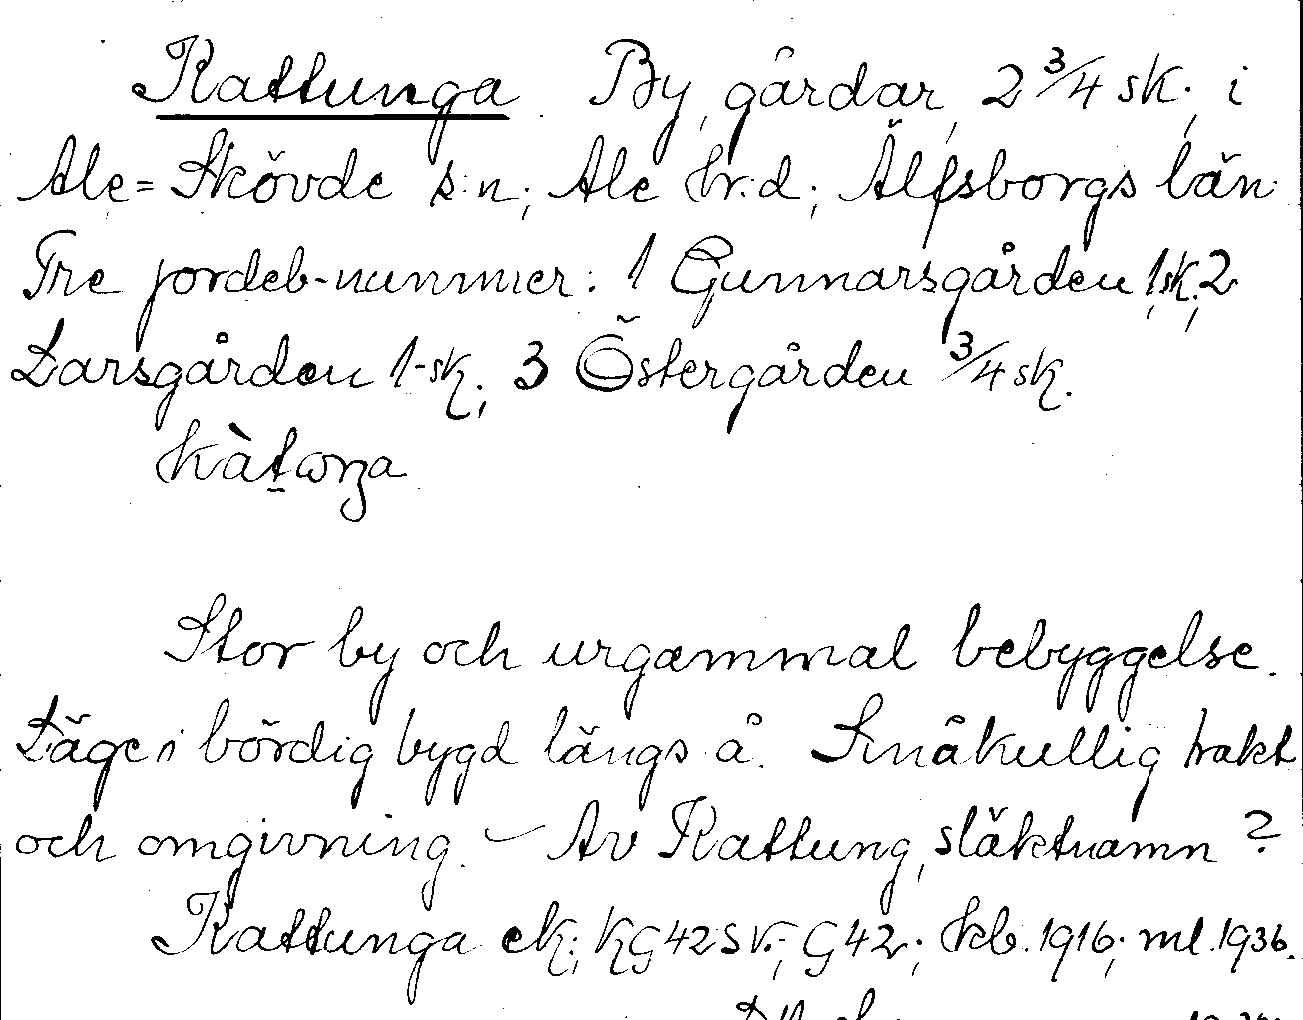 Kattunga By, gårdar, 2 3/4 sk., i
Ale=Skövde s:n; Ale hr:d; Älfsborgs län.
Tre jordeb-nummer: 1 Gunnarsgården 1 sk., 2
Larsgården 1 sk.; 3 Östergården 3/4 sk.
Stor by och urgammal bebyggelse.
Läge i bördig bygd längs å. Småkullig trakt
och omgivning. – Av Kattung, släktnamn?
Kattunga ek.; KG 42 SV.; G 42; kb. 1916; ml. 1936.